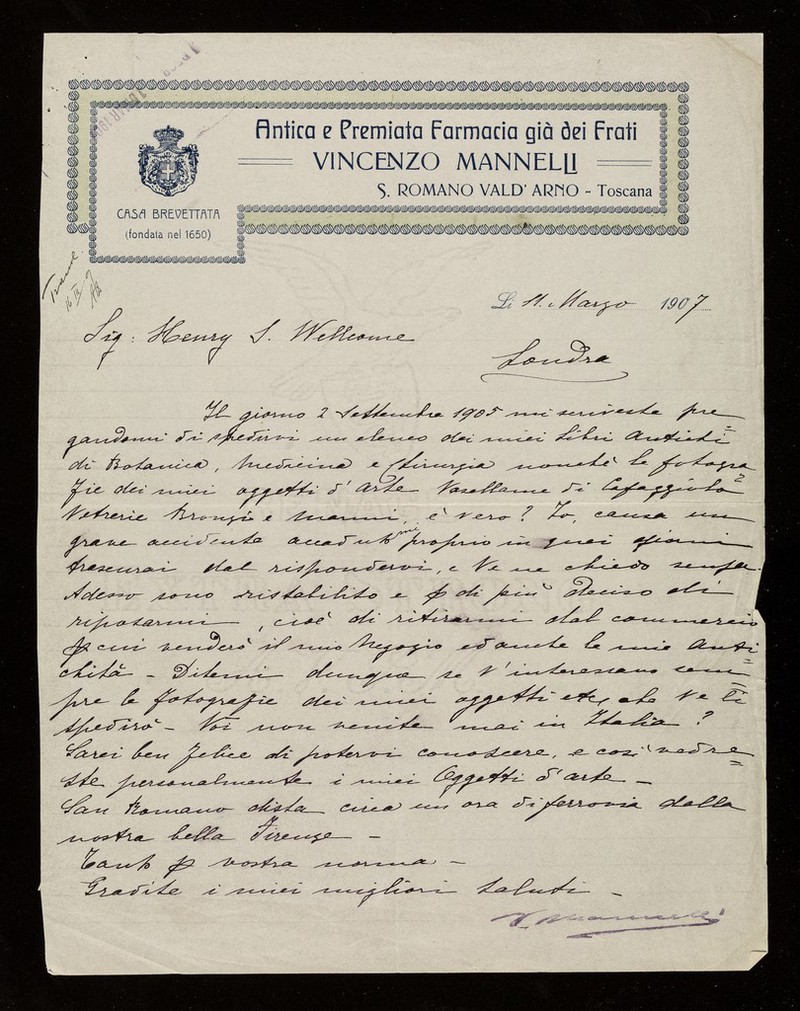 Antica e Premiata Farmacia già dei Frati
VINCENZO MANNELLI
S. ROMANO VALD'ARNO - Toscana
CASA BREVETTATA
(fondata nel 1650)
Li 11. Marzo 1907
Sig: Henry S. Wellcome
Londra
Il giorno 2 Settembre 1905 mi scriveste pre
gandomi di spedirvi un elenco dei miei Libri Antichi
di Botanica, Medicina e Chirurgia nonchè le fotogra
fie dei miei oggetti d'arte Vasellame di Cafaggiolo
Vetrerie Bronzi e Marmi, è vero? Io, causa un
grave accidente accadutomi proprio in quei giorni
trascurai dal rispondervi, e Ve ne chiedo scusa.
Adesso sono ristabilito e di più deciso di
riposarmi, cioè di ritirarmi dal commercio
p cui venderò il mio Negozio ed anche le mie Anti
chità - Ditemi dunque se V'interessano sem
pre le fotografie dei miei oggetti etc che Ve li
spedirò - Voi non venite mai in Italia?
Sarei ben felice di potervi conoscere, e così vedre
ste personalmente i miei Oggetti d'arte -
San Romano dista circa un ora di ferrovia dalla
nostra bella Firenze -
Tanto p vostra norma -
Gradite i miei migliori saluti -
V. Mannelli